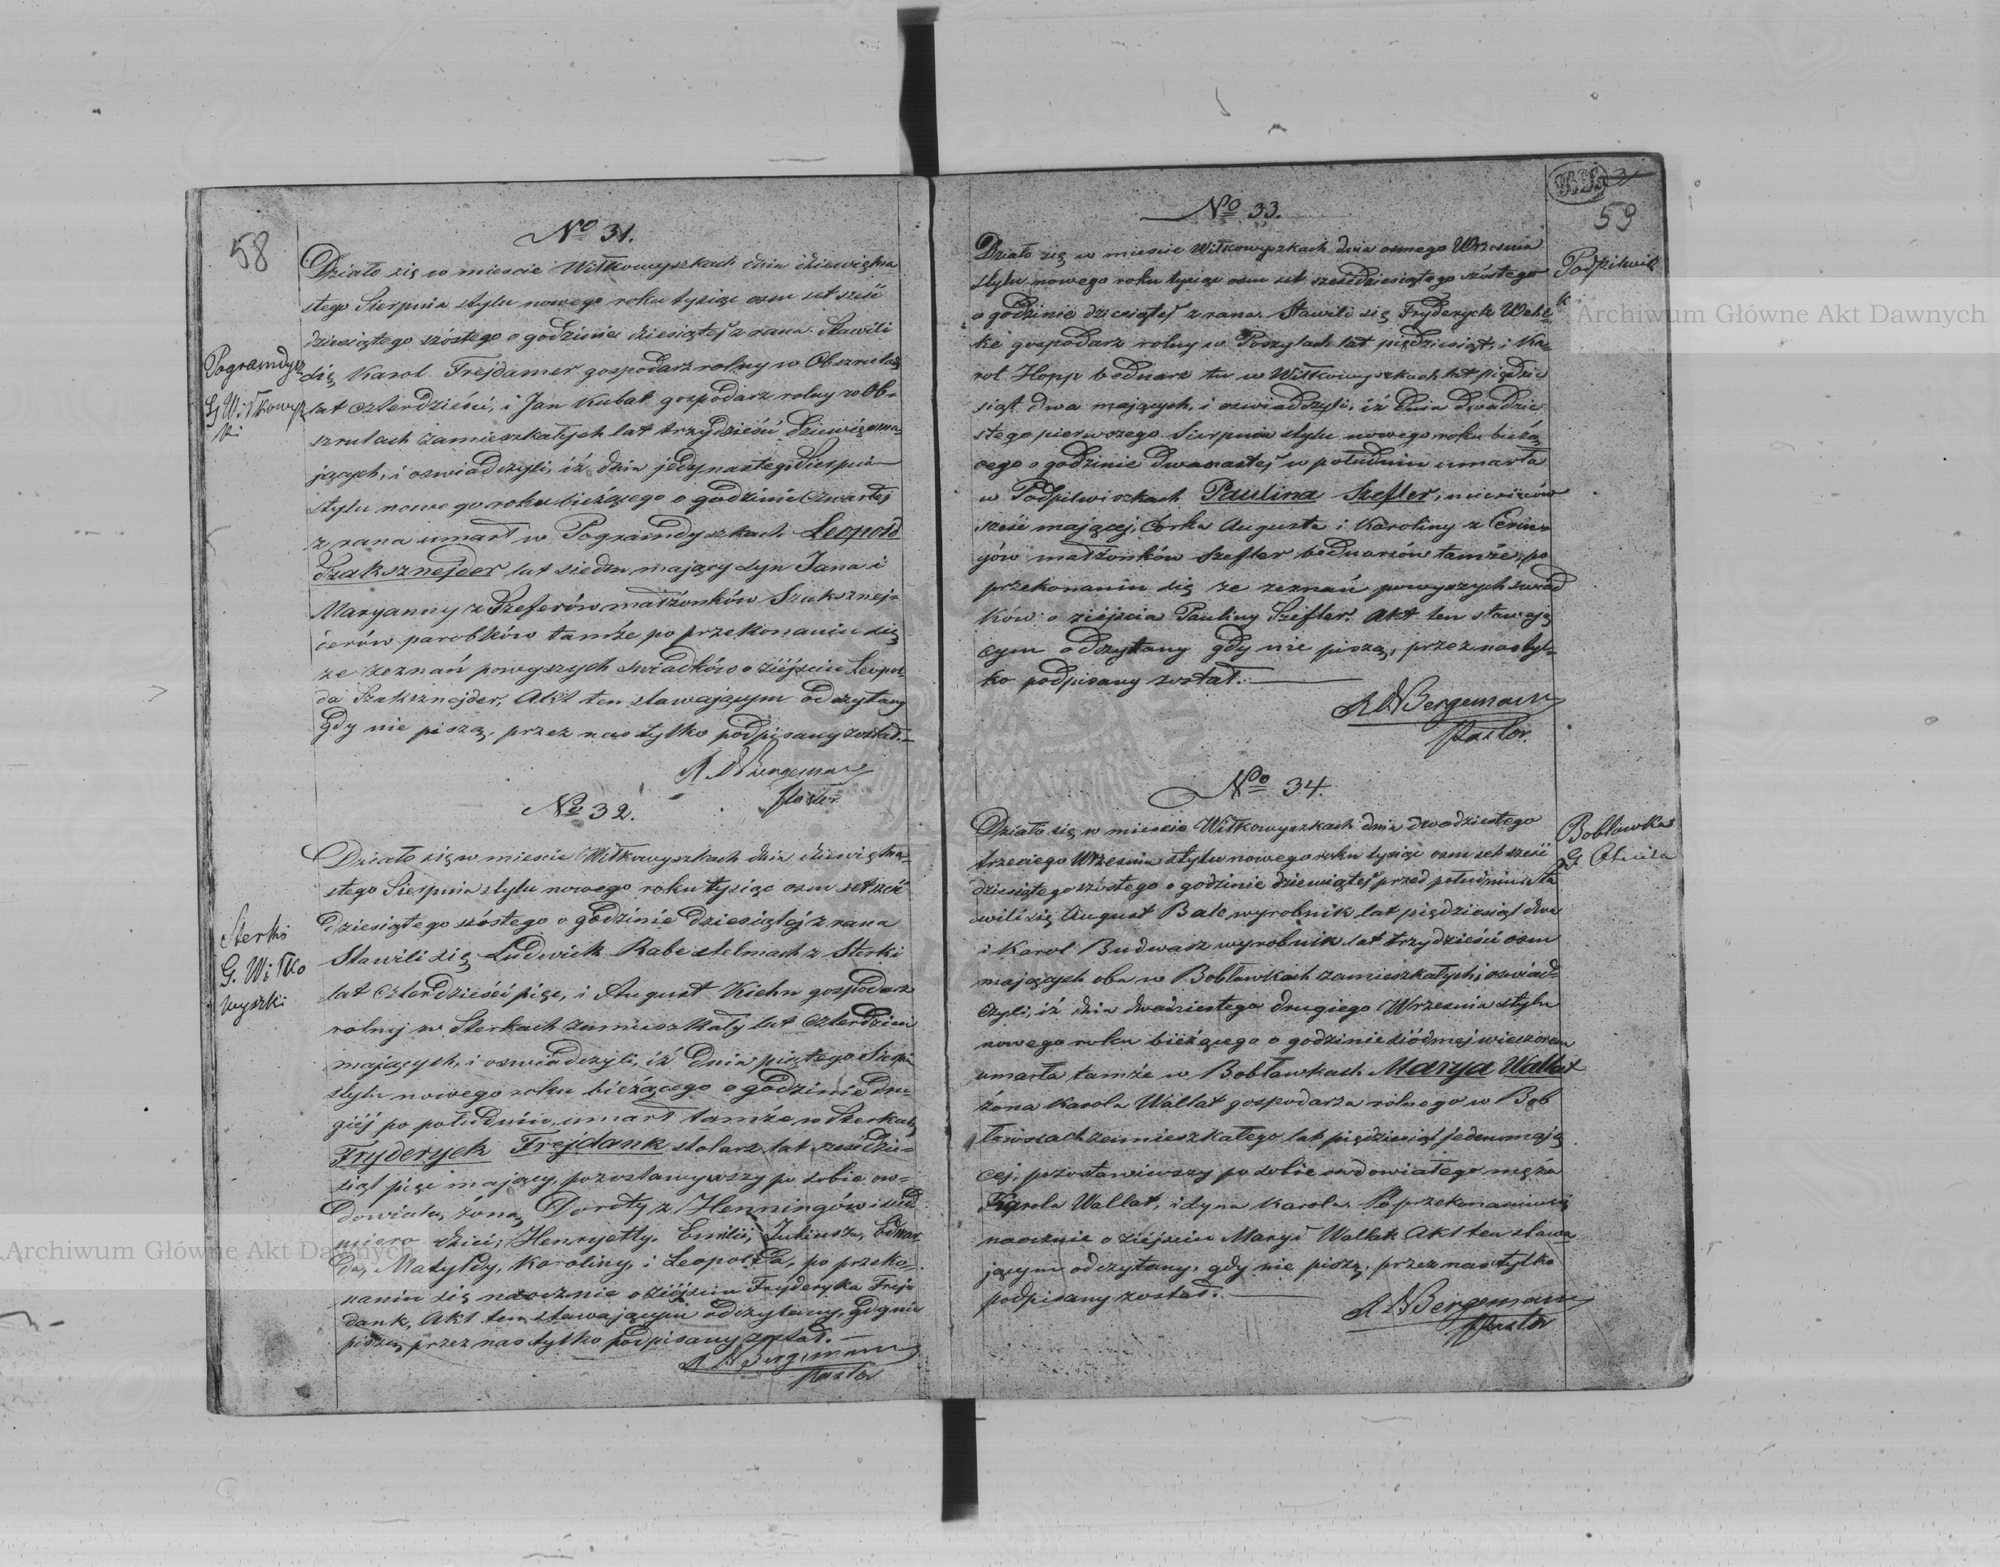 58
No 31.
Działo się w mieście Wiłkowyszkach dnia dziewiętna
stego Sierpnia stylu nowego roku tysiąc osm set sześć
dziesiątego szóstego o godzinie dziesiątej z rana. Stawili
się Karol Frejdamer gospodarz rolny w Obszrutach
lat czterdzieści, i Jan Kubat gospodarz rolny w Ob-
szrutach zamieszkałych lat trzydzieści dziewięć ma-
jących, i oswiadczyli, iż dnia jedynastego Sierpnia
stylu nowego roku bieżącego o godzinie czwartej
z rana umarł w Pograndyszkach Leopold
Szaksznejder lat siedm mający syn Jana i
Maryanny z Szeferów małżonków Szaksznej-
derów parobków tamże po przekonaniu się
ze zeznań powyszych swiadków o zéjściu Leopol
da Szaksznejder, Akt ten stawającym odczytany
Gdy nie piszą, przez nas tylko podpisany został.
Bergemann
Pastor
Wiłkowysz
ki
No 32.
Działo się w mieście Wiłkowyszkach dnia dziewiętna-
stego Sierpnia stylu nowego roku tysiąc osm set sześć
dziesiątego szóstego o godzinie dziesiątej z rana
Stawili się Ludwik Rabe stelmach z Sterki
lat czterdzieści pięć, i August Kiehn gospodarz
rolny w Sterkach zamieszkały lat czterdzieści
mających, i oswiadczyli, iż dnia piątego Sierpnia
stylu nowego roku bieżącego o godzinie dru-
giéj po południu, umarł tamże w Sterkach
Fryderyck Frejdank stolarz lat sześćdzie-
siąt pięć mający, pozostawiwszy po sobie ow-
dowiała, żona, Dorotę z Henningów i siedm
dzieci; Henryetty, Emilii, Juliusza, Edwar
da, Matyldy, Karoliny, i Leopolda, po przeko-
naniu się naocznie o zéjściu Fryderyka Frej-
dank, Akt ten stawającym odczytany, gdy nie
piszą, przez nas tylko podpisany został.
Bergemann
Pastor
Sterki
G. Wiłko
wyszki
59
No 33.
Działo się w mieście Wiłkowyszkach dnia osmego Września
stylu nowego roku tysiąc osm set sześćdziesiątego szóstego
o godzinie dziesiątej z rana. Stawili się Fryderyck Wehl-
ke gospodarz rolny w Poszylach lat pięćdziesiąt, i Ka-
rol Hopp bednarz tu w Wiłkowyszkach lat pięćdzie
siąt dwa mających, i oswiadczyli, iż dnia dwudzie
stego pierwszego Sierpnia stylu nowego roku bieżą
cego o godzinie dwunastej w południu umarła
w Podpilwiszkach Paulina Szefler, miesiąców
sześć mającej, córka Augusta i Karoliny z
małżonków Szefler bednarzów tamże, po
przekonaniu się ze zeznań powyszych swiad
ków o zéjścia Pauliny Szefler. Akt ten stawają
cym odczytany gdy nie piszą, przez nas tyl-
ko podpisany został.
Bergemann
Pastor.
No 34.
Działo się w mieście Wiłkowyszkach dnia dwudziestego
trzeciego Września stylu nowego roku tysiąc osm set sześć
dziesiątego szóstego o godzinie dziewiątej przed południu sta
wili się August Bale wyrobnik, lat pięćdziesiąt dwa
i Karol Budwasz wyrobnik lat trzydzieści osm
mających oba w Bobławkach zamieszkałych, i oswiad-
czyli, iż dnia dwudziestego drugiego Września stylu
nowego roku bieżącego o godzinie siódmej wieczorem
umarła tamże w Bobławkach Marya Wallat
żona Karola Wallat gospodarza rolnego w Bob
ławkach zamieszkałego, lat pięćdziesiąt jeden mają
cej, pozostawiwszy po sobie owdowiałego męża
Karola Wallat, i syna Karola. Po przekonaniu się
naocznie o zéjściu Maryi Wallat. Akt ten stawa
jącym odczytany, gdy nie piszą, przez nas tylko
podpisany został.
Bergemann
Pastor
Bobławka
Archiwum Główne Akt Dawnych
Archiwum Główne Akt Dawnych